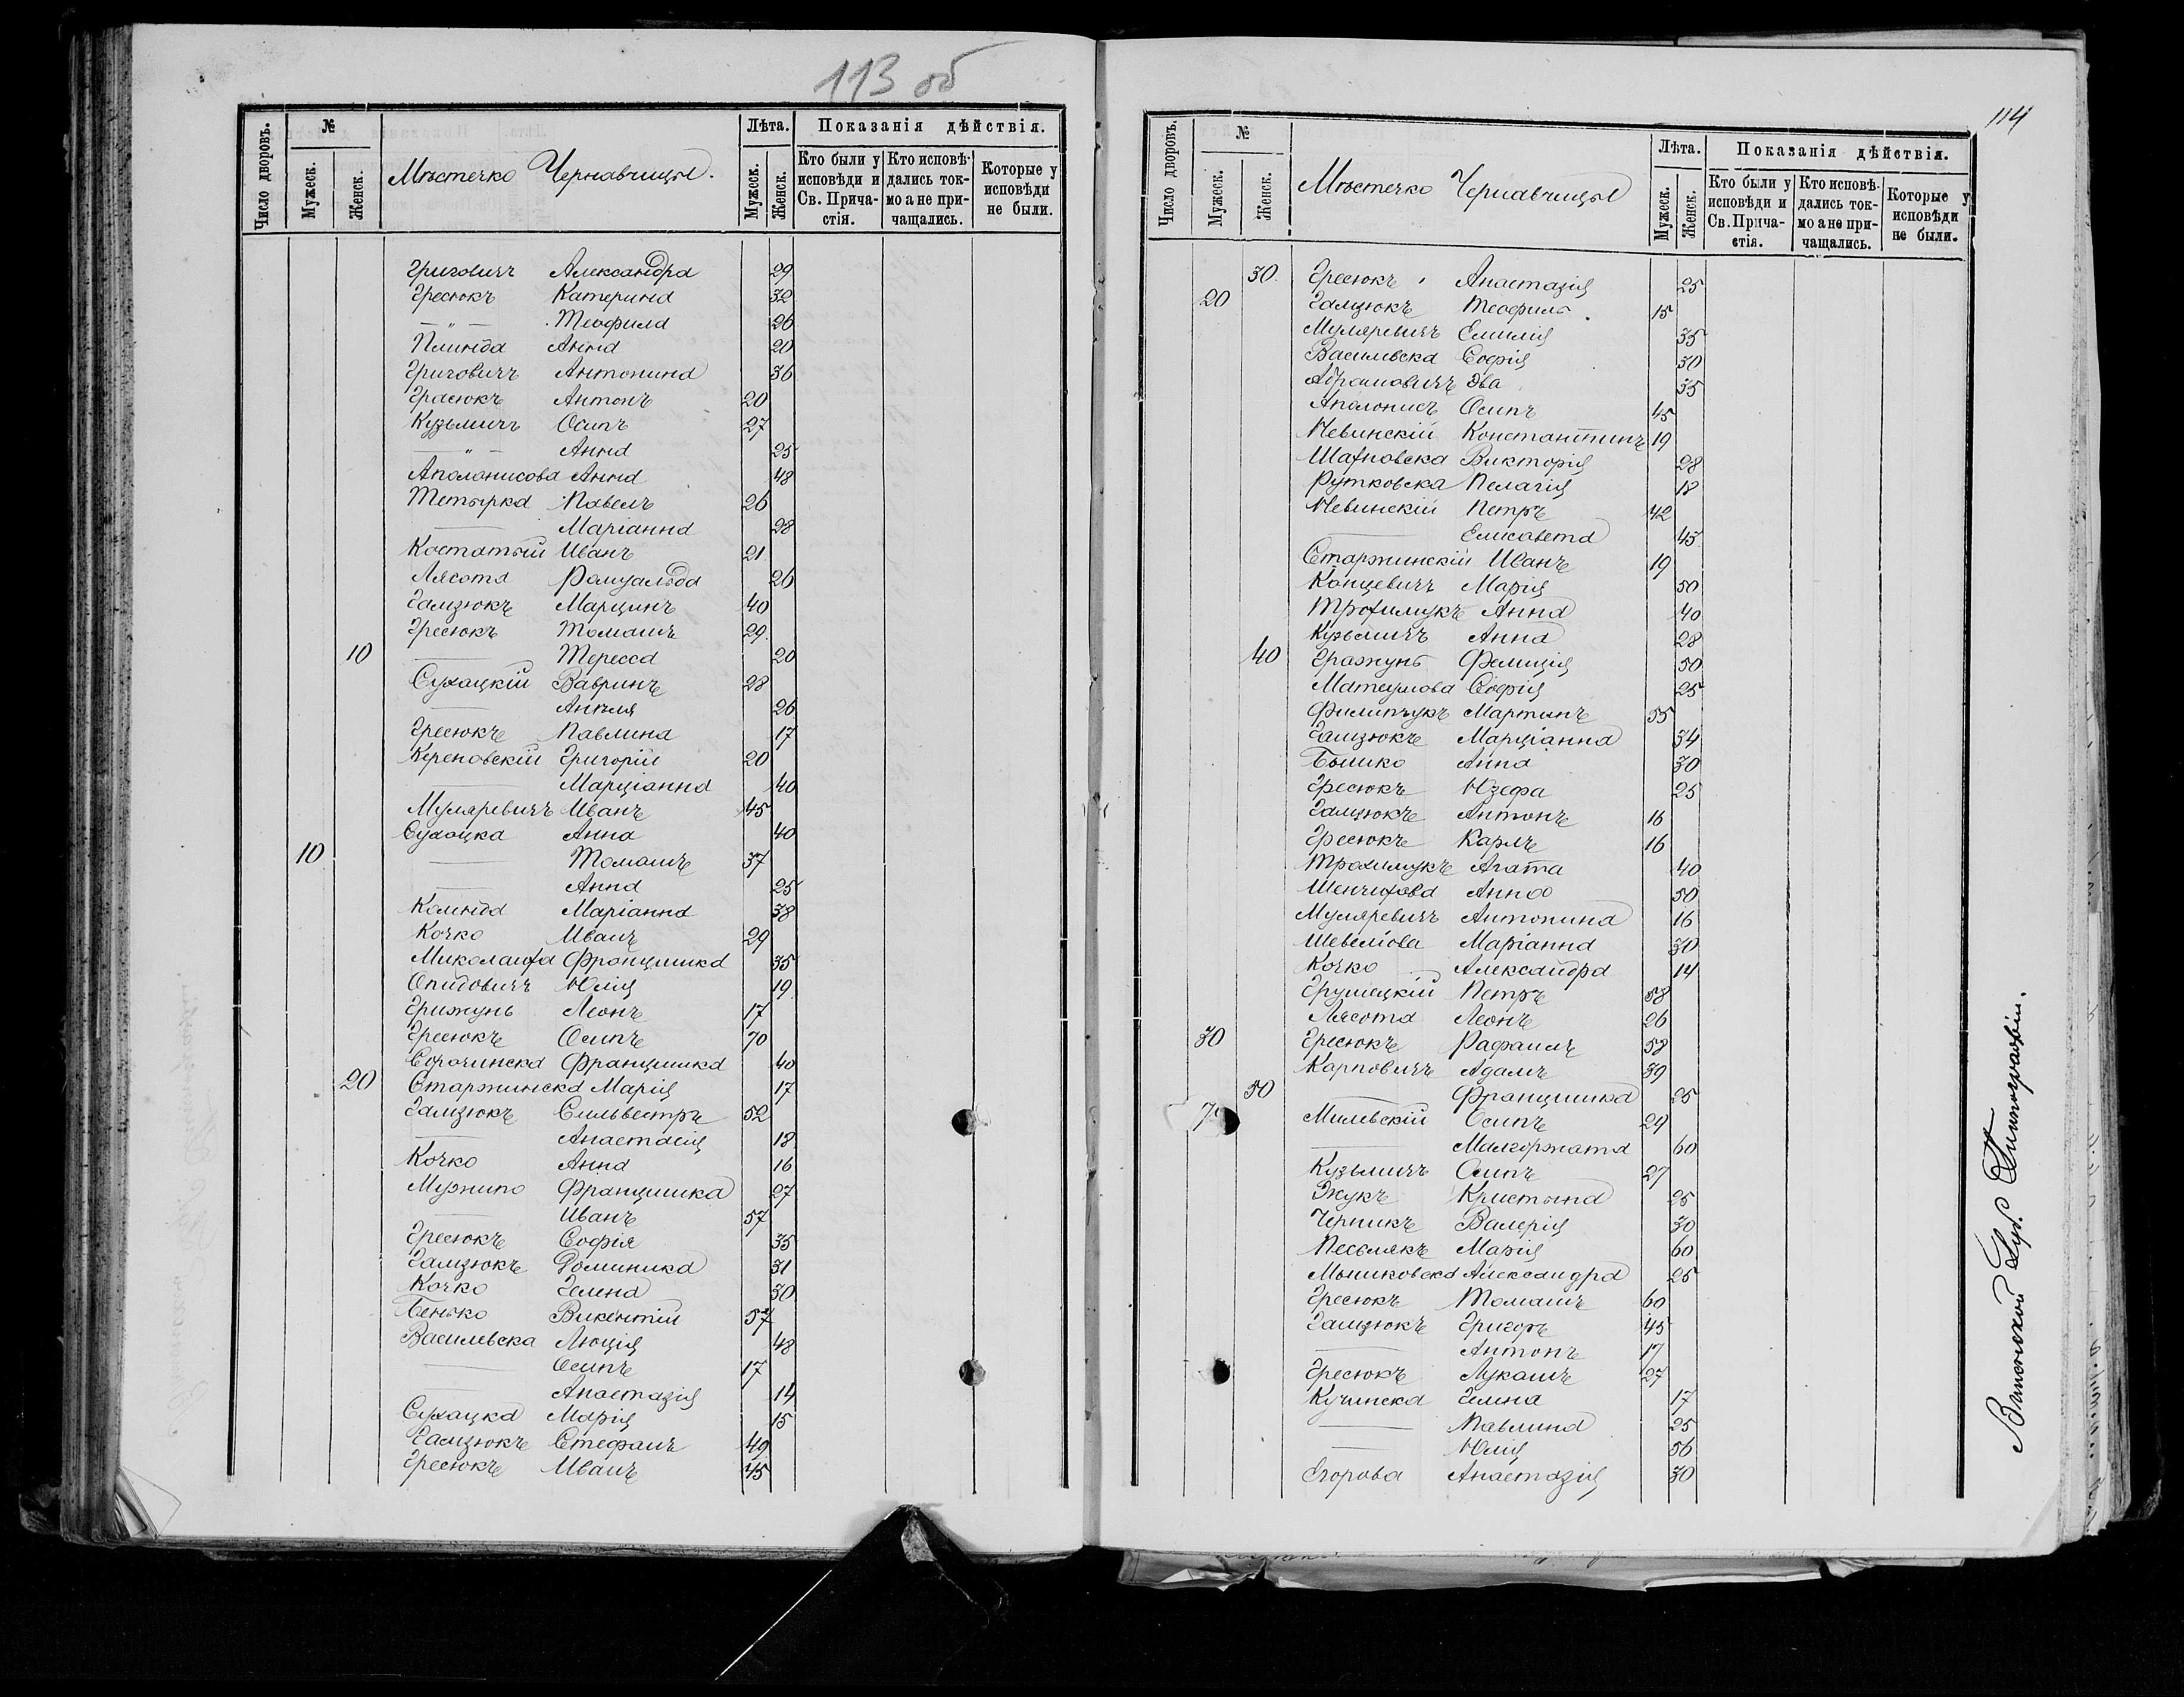 113 об
Число дворовъ.
№
Мужеск.
Женск.
Мѣстечко Чернавчицы.
Лѣта.
Мужеск.
Женск.
Показанія дѣйствія.
Кто были у исповѣди и Св. Прича-стія.
Кто исповѣ-дались ток-мо а не при-чащались.
Которые у исповѣди не были.
Григовичъ Александра 29
Гресюкъ Катерина 32
— " — Теофила 26
Плинда Анна 20
Григовичъ Антонина 36
Грасюкъ Антонъ 20
Кузьмичъ Осипъ 27
— " — Анна 25
Аполонисова Анна 48
Тетырка Павелъ 26
— Маріанна 28
Костатый Иванъ 21
Лясота Ромуальда 26
Гамзюкъ Марцинъ 40
Гресюкъ Томашъ 29
10 — Тересса 20
Сухацкій Вавринъ 28
— Анеля 26
Гресюкъ Павлина 17
Кереновскій Григорій 20
— Марціанна 40
Муляревичъ Иванъ 45
Сухацка Анна 40
10 — Томашъ 37
— Анна 25
Колнда Маріанна 38
Кочко Иванъ 29
Миколаифа Францишка 35
Опидовичъ Юлія 19
Грижунь Леонъ 17
Гресюкъ Осипъ 70
Сорочинска Францишка 40
20 Старжинска Марія 17
Гамзюкъ Сильвестръ 52
— Анастасія 18
Кочко Анна 16
Мужило Францишка 27
— Иванъ 57
Гресюкъ Софія 35
Гамзюкъ Доминика 31
Кочко Гелена 30
Бенько Викентій 57
Василевска Люція 48
— Осипъ 17
— Анастазія 14
Сухацка Марія 15
Гамзюкъ Стефанъ 49
Гресюкъ Иванъ 45
114
Число дворовъ.
№
Мужеск.
Женск.
Мѣстечко Чернавчицы
Лѣта.
Мужеск.
Женск.
Показанія дѣйствія.
Кто были у исповѣди и Св. Прича-стія.
Кто исповѣ-дались ток-мо а не при-чащались.
Которые у исповѣди не были.
30 Гресюкъ Анастазія 25
20 Гамзюкъ Теофилъ 15
Муляревичъ Емилія 35
Василевска Софія 30
Абрамовичъ Эва 35
Аполонисъ Осипъ 45
Невинскій Константинъ 19
Шафновска Викторія 28
Рутковска Пелагія 18
Невинскій Петръ 42
— Елисавета 45
Старжинскій Иванъ 19
Концевичъ Марія 50
Трофимукъ Анна 40
Кузьмичъ Анна 28
40 Гражунь Фелиція 50
Матеушова Софія 25
Филипчукъ Мартинъ 55
Гамзюкъ Марціанна 34
Бышко Анна 30
Гресюкъ Юзефа 25
Гамзюкъ Антонъ 16
Гресюкъ Карлъ 16
Трохимукъ Агата 40
Шенчифова Анна 50
Муляревичъ Антонина 16
Шевеліова Маріанна 30
Кочко Александра 14
Грушецкій Петръ 58
Лясота Леонъ 26
30 Гресюкъ Рафаилъ 58
Карповичъ Адамъ 39
50 — Францишка 25
Милевскій Осипъ 29
— Малгоржата 60
Кузьмичъ Осипъ 27
Жукъ Кристына 25
Черникъ Валерія 30
Песлякъ Марія 60
Мышковска Александра 25
Гресюкъ Томашъ 60
Гамзюкъ Григоръ 45
— Антонъ 17
Гресюкъ Лукашъ 27
Кучинска Гелена 17
— Павлина 25
— Юлія 56
Егорова Анастазія 30
Виленской Губ. Типографіи.